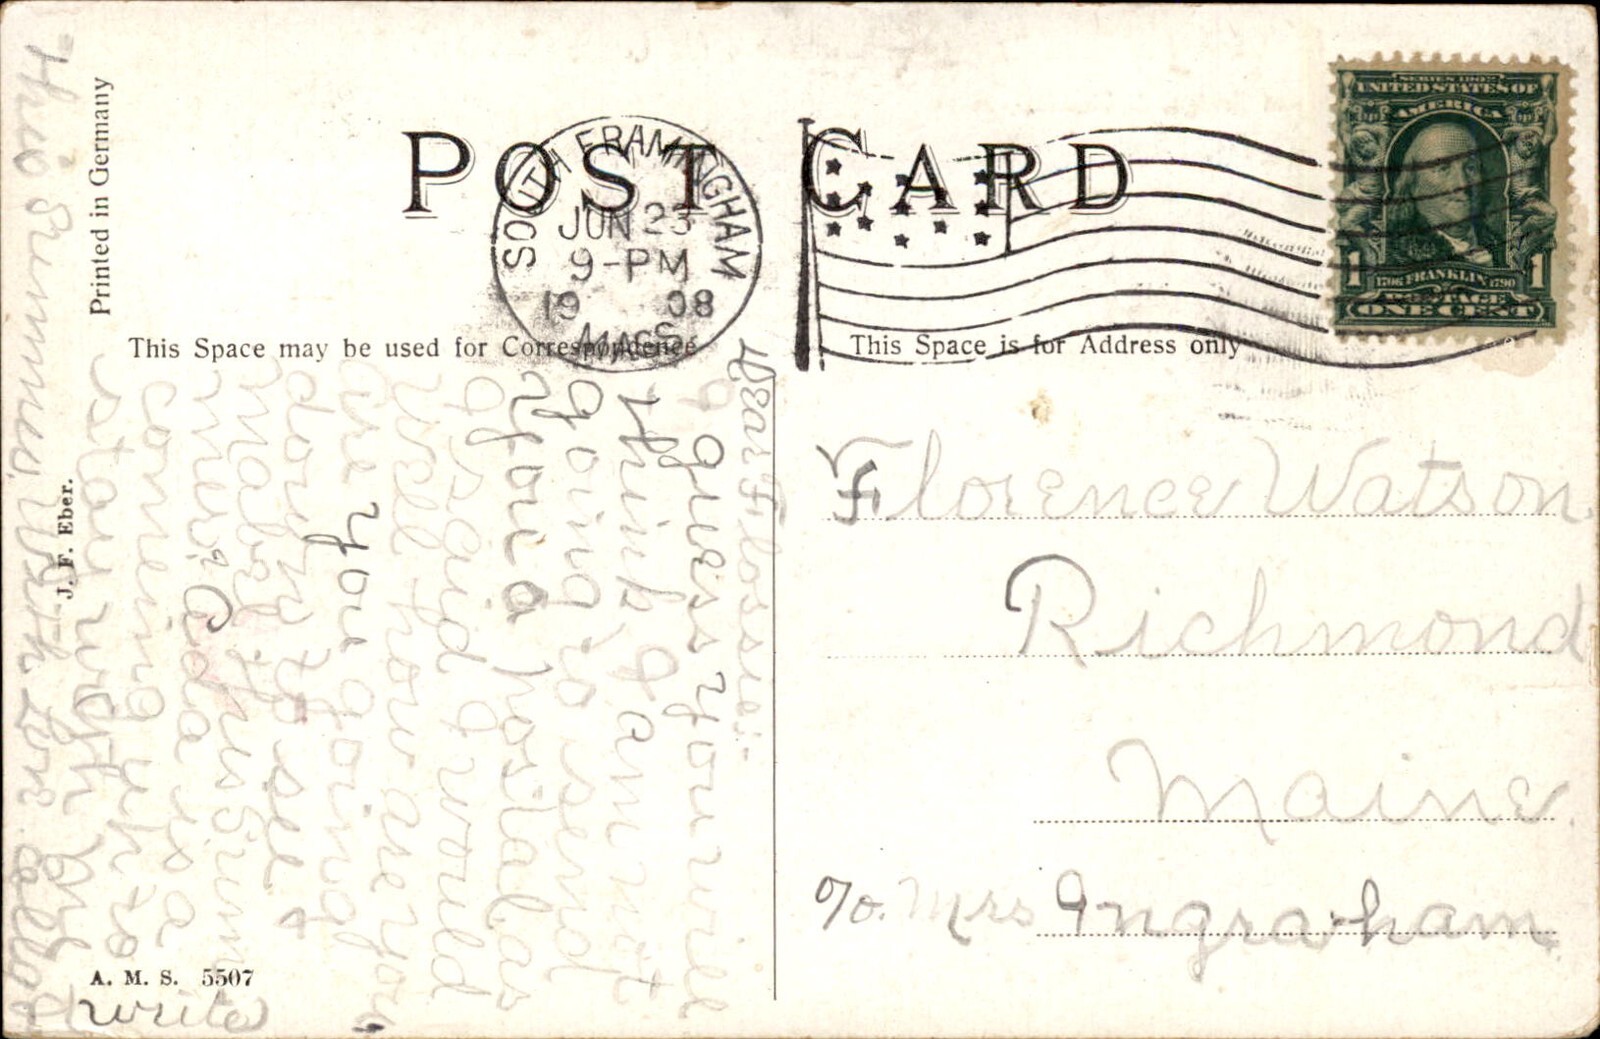 POST CARD
SOUTH FRAMINGHAM
JUN 23
9-PM
1908
MASS.
SERIES 1902
UNITED STATES OF
AMERICA
1706 FRANKLIN 1790
POSTAGE
1 1
ONE CENT
Printed in Germany
J. F. Eber.
A. M. S. 5507
This Space may be used for Correspondence
This Space is for Address only
Dear Flossie:-
I guess you will
think I am not
going to send
you a postal as
I said I would
well how are you
are you going
down to see
Mabel this sum
mer? Ada is a
coming up to
stay with
this summer With love
write
Florence Watson
Richmond
Maine.
c/o. Mrs Ingraham